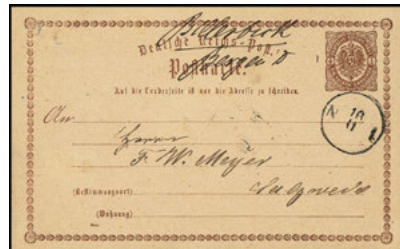 Deutsche Reichs-Post.
Postkarte.
Auf die Vorderseite ist nur die Adresse zu schreiben.
An
N 10
11 1
Herrn
F. W. Meyer
(Bestimmungsort)
(Wohnung)